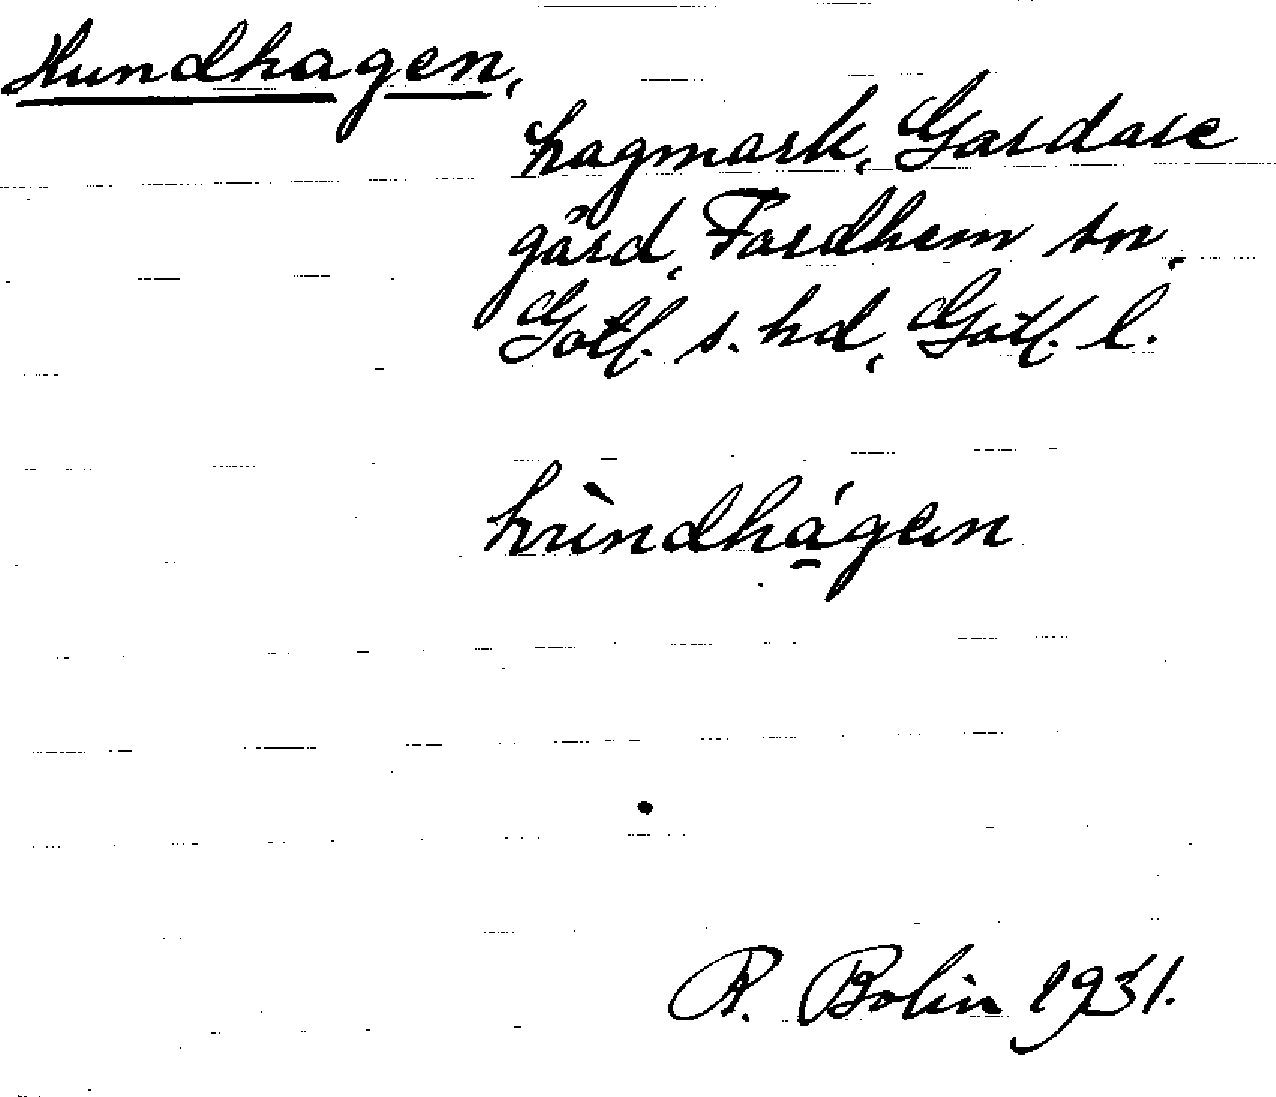 Hundhagen,
hagmark, Gardare
gård, Fardhem sn,
Gotl. s. hd, Gotl. l.
hùndhá̱gen
R. Bolin 1931.